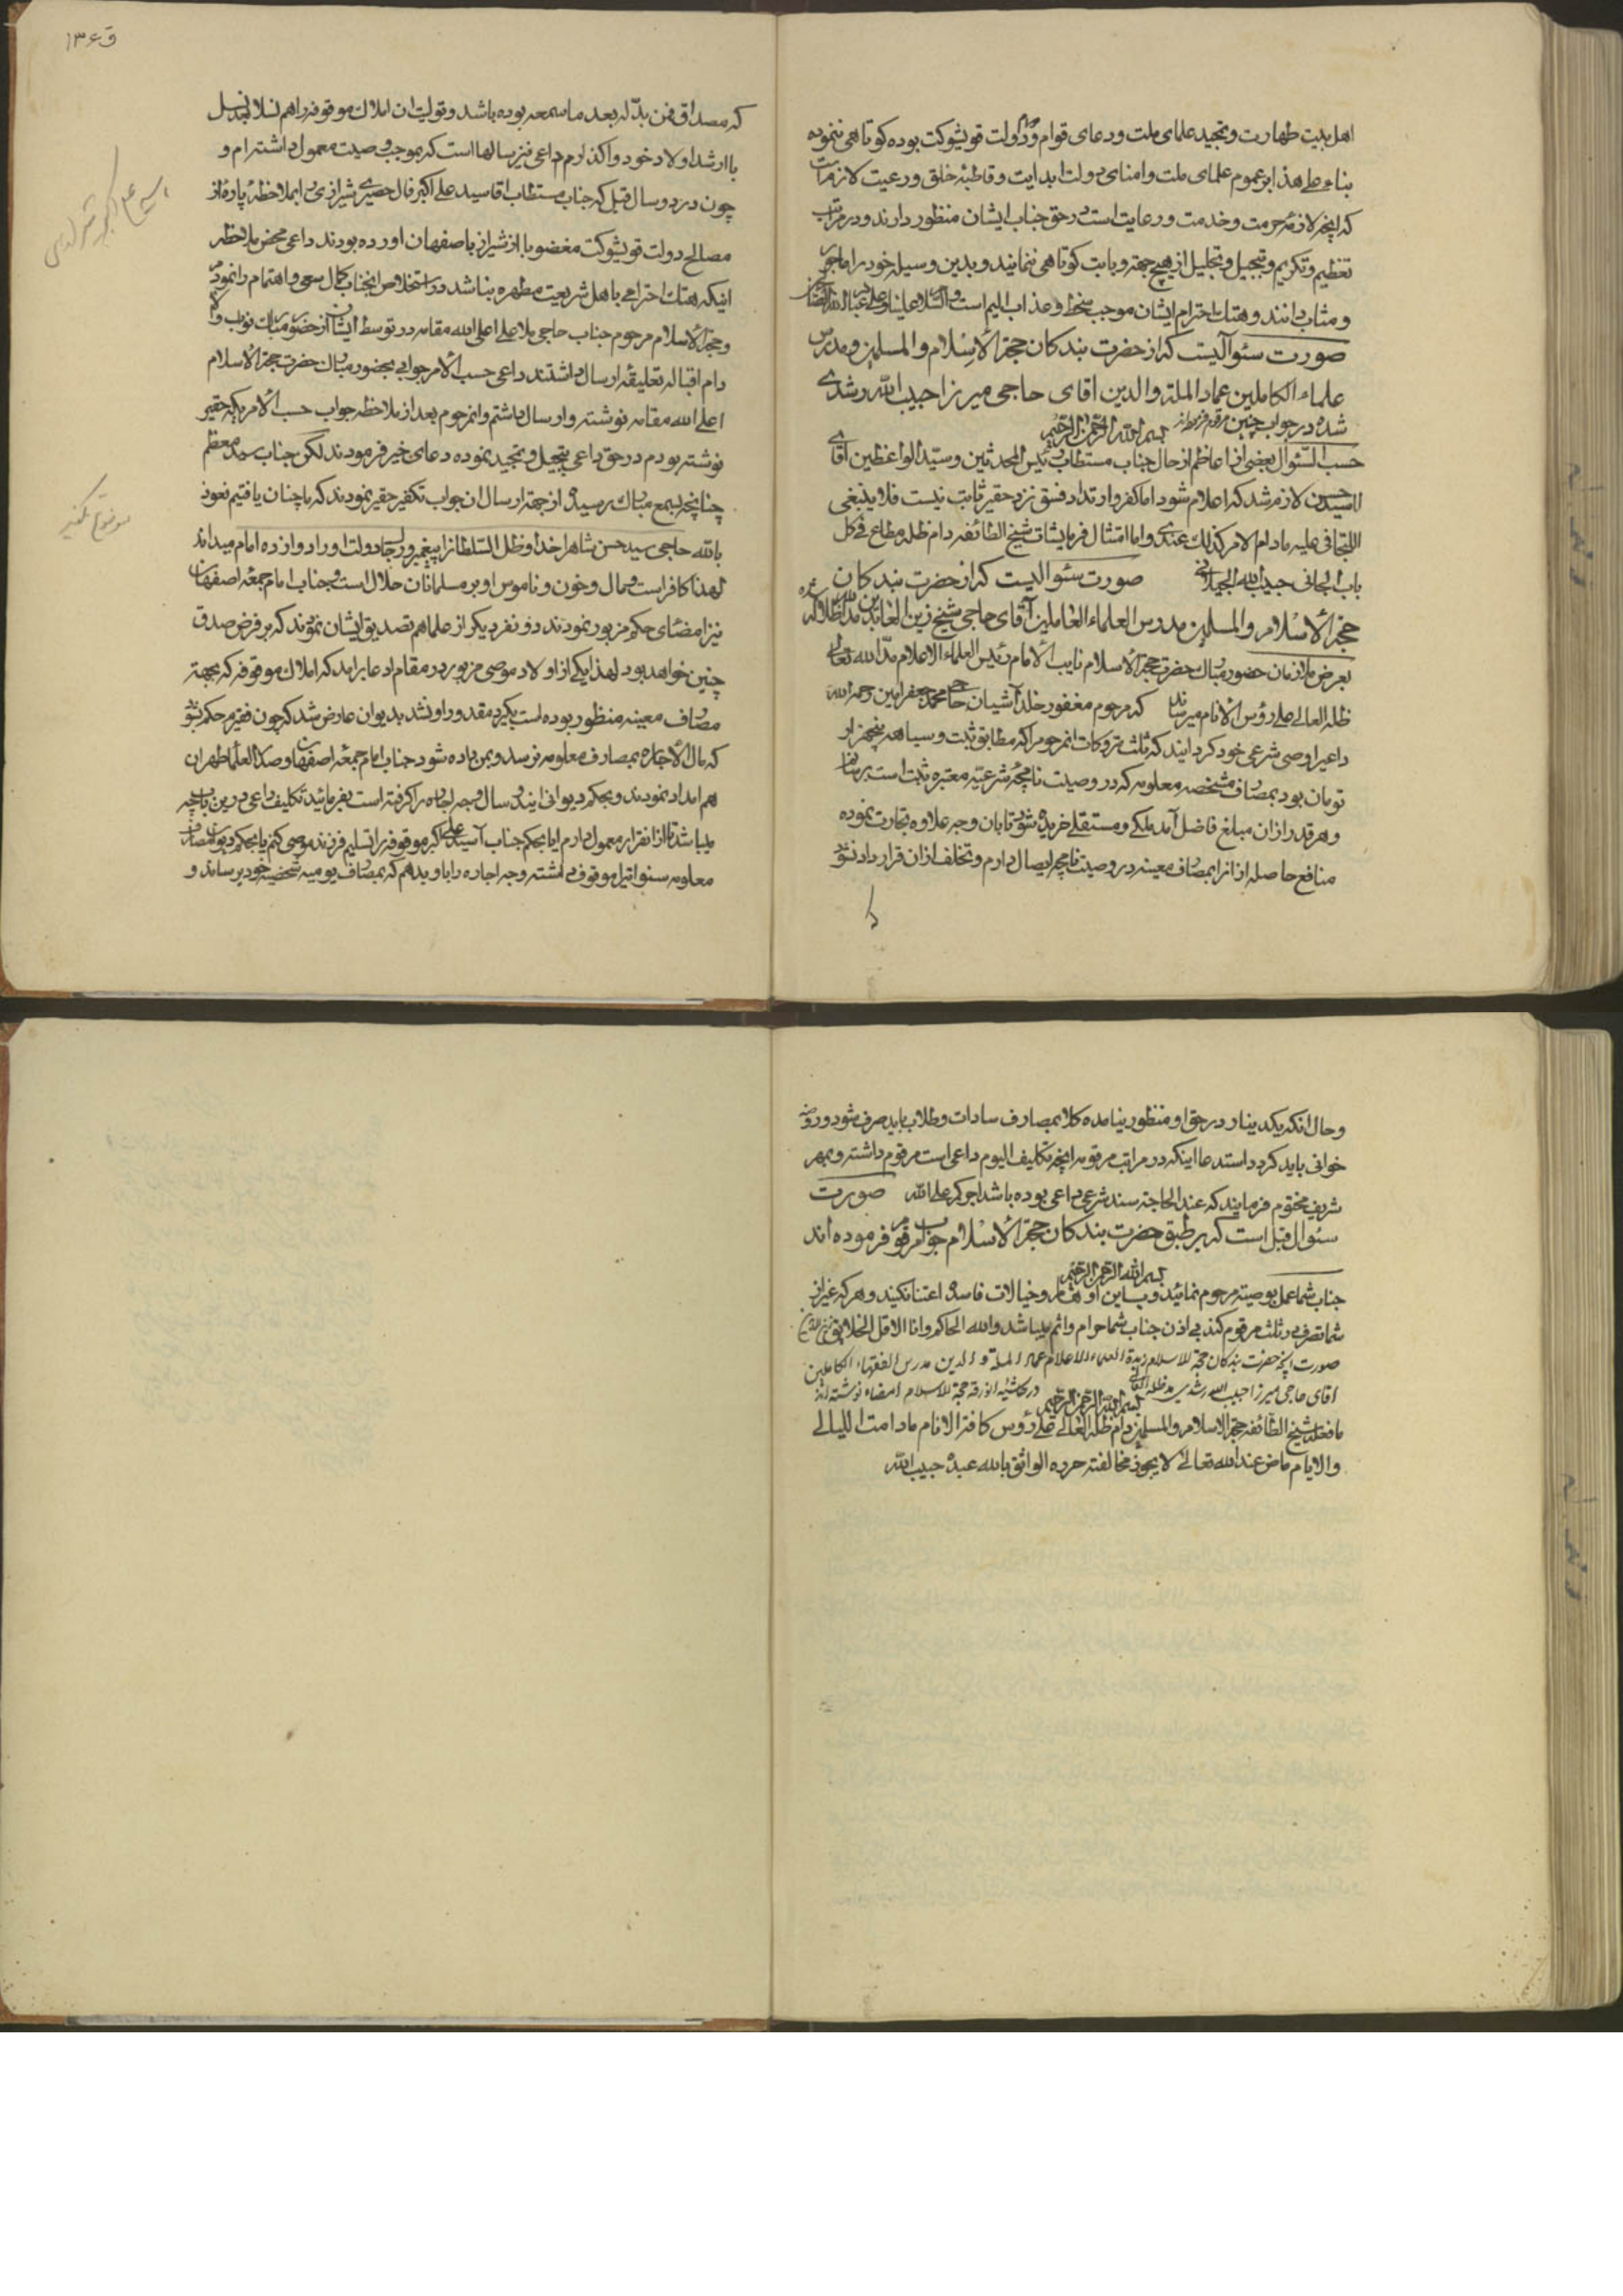 اهل بیت طهارت و تمجید علمای ملت و دعای قوام و دوام دولت قویشوکت بوده کوتاهی ننموده
بناء علی هذا بر عموم علمای ملت و امنای دولت ابدایت و قاطبهٔ خلق و رعیت لازم است
که آنچه لازمهٔ حرمت و خدمت و رعایت است در حق جناب ایشان منظور دارند و در مراتب
تعظیم و تکریم و تبجیل و تجلیل از هیچ جهة و بابت کوتاهی ننمایند و بدین وسیله خود را ماجور
و مثاب دانند و هتك احترام ایشان موجب سخط و عذاب الیم است و السلام علینا و علی عباد الله الصالحین
صورت سئوالیست که از حضرت بندکان حجة الاسلام والمسلمین و مدرس
علماء الکاملین عماد الملة والدین اقای حاجی میرزا حبیب الله رشدی
شده در جواب چنین مرقوم فرموده‌اند بسم الله الرحمن الرحیم
حسب السئوال بعضی از اعاظم از حال جناب مستطاب رئیس المحدثین و سید الواعظین آقای
سید حسن لازم شد که اعلام شود اما کفر و ارتداد و فسق نزد حقیر ثابت نیست فلا ینبغی
التجافی علیه مادام الامر کذلك عندی و اما امتثال فرمایشات شیخ الطائفه دام ظله مطاع فی کل
باب الجانی حبیب الله الجیلانی صورت سئوالیست که از حضرت بندکان
حجة الاسلام والمسلمین مدرس العلماء العاملین آقای حاجی شیخ زین العابدین مد الله ظلاله
بعرض ملازمان حضور مبارك حضرت حجة الاسلام نایب الامام رئیس العلماء الاعلام مد الله تعالی
ظله العالی علی رؤس الانام میرساند که مرحوم مغفور خلد آشیان حاجی محمد جعفر امین رحمه الله
داعی را وصی شرعی خود کردانید که ثلث متروکات انمرحوم را که مطابق ثبت و سیاهه پنجهزار
تومان بود بمصارف مشخصه معلومه که در وصیت نامچهٔ شرعیهٔ معتبره ثبت است برسانم
و هر قدر از ان مبلغ فاضل آمد ملکی و مستقلی خریده شود تا بان وجه علاوه تجارت نموده
منافع حاصله از انرا بمصارف معینه در وصیت نامچه ایصال دارم و تخلف از ان قرارداد نشود
ق ۱۳۶
که مصداق فمن بدله بعد ما سمعه بوده باشد و تولیت ان املاك موقوفه را هم نسلا بعد نسل
با ارشد اولاد خود واکذارم داعی نیز سالها است که بموجب وصیت معمول داشته‌ام و
چون در دو سال قبل که جناب مستطاب اقا سید علی اکبر فال حصیری شیرازی را بملاحظهٔ پارهٔ از
مصالح دولت قویشوکت مغضوبا از شیراز باصفهان اورده بودند داعی محض ملاحظه
اینکه هتك احترامی باهل شریعت مطهره نباشد در استخلاص انجناب کمال سعی و اهتمام را نمودم
و حجة الاسلام مرحوم جناب حاجی ملا علی اعلی الله مقامه در توسط ایشان از حضور مبارك نواب والا
دام اقباله تعلیقهٔ ارسال داشتند داعی حسب الامر جوابی بحضور مبارك حضرت حجة الاسلام
اعلی الله مقامه نوشته و ارسال داشتم و انمرحوم بعد از ملاحظه جواب حسب الامر یکه حقیر
نوشته بودم در حق داعی تبجیل و تمجید نموده دعای خیر فرمودند لکن جناب سید معظم
چنانچه بسمع مبارك رسیده از جهة ارسال ان جواب تکفیر حقیر نمودند که ما چنان یافتیم نعوذ
بالله حاجی سید حسن شاه را خدا و ظل السلطان را پیغمبر و رجال دولت او را دوازده امام میداند
لهذا کافر است و مال و خون و ناموس او بر مسلمانان حلال است و جناب امام جمعهٔ اصفهان
نیز امضای حکم مزبور نمودند دو نفر دیکر از علما هم تصدیق ایشان نمودند که بر فرض صدق
چنین خواهد بود لهذا یکی از اولاد موصی مزبور در مقام ادعا برامد که املاك موقوفه که بجهة
مصارف معینه منظور بوده است بکیرد مقدور او نشد بدیوان عارض شد که چون فقیرم حکم شود
که مال الاجاره بمصارف معلومه نرسد و بمن داده شود جناب امام جمعهٔ اصفهان و صدر العلماء طهران
هم امداد نمودند و بحکم دیوانی ایندو سال وجه اجاره را کرفته است بفرمائید تکلیف داعی درین باب چه
میباشد تا از انقرار معمول دارم ایا بحکم جناب آسید علی اکبر موقوفه را تسلیم فرزند موصی کنم یا بحکم دیوان مصارف
معلومه سنواتیرا موقوف داشته وجه اجاره را باو بدهم که بمصارف یومیه شخصیه خود برساند و
اسید علی اکبر شیرازی
موضوع تکفیر
و حال انکه یکدینار در حق او منظور نیامده کلا بمصارف سادات و طلاب باید صرف شود و روضه
خوانی باید کرد و استدعا اینکه در مراتب مرقومه آنچه تکلیف الیوم داعی است مرقوم داشته و بمهر
شریف مختوم فرمایند که عند الحاجة سند شرعی داعی بوده باشد اجرکم علی الله صورت
سئوال قبل است که بر طبق حضرت بندکان حجة الاسلام جواب مرقوم فرموده اند
بسم الله الرحمن الرحیم
جناب شما عمل بوصیت مرحوم نمائید و باین اوهام و خیالات فاسده اعتنا نکنید و هر که غیر از
شما تصرفی در ثلث مرقوم کند بی اذن جناب شما حرام و اثم میباشد والله الحاکم و انا الاقل الخلایق
صورت آنچه حضرت بندکان حجة الاسلام زبدة العلماء الاعلام عماد الملة و الدین مدرس الفقهاء الکاملین
اقای حاجی میرزا حبیب الله رشدی مد ظله العالی در حاشیه انورقه حجة الاسلام امضاء نوشته اند
بسم الله الرحمن الرحیم
ما فعله شیخ الطائفه حجة الاسلام والمسلمین دام ظله العالی علی رؤس کافة الانام مادامت اللیالی
والایام ماض عند الله تعالی لا یجوز مخالفته حرره الواثق بالله عبده حبیب الله